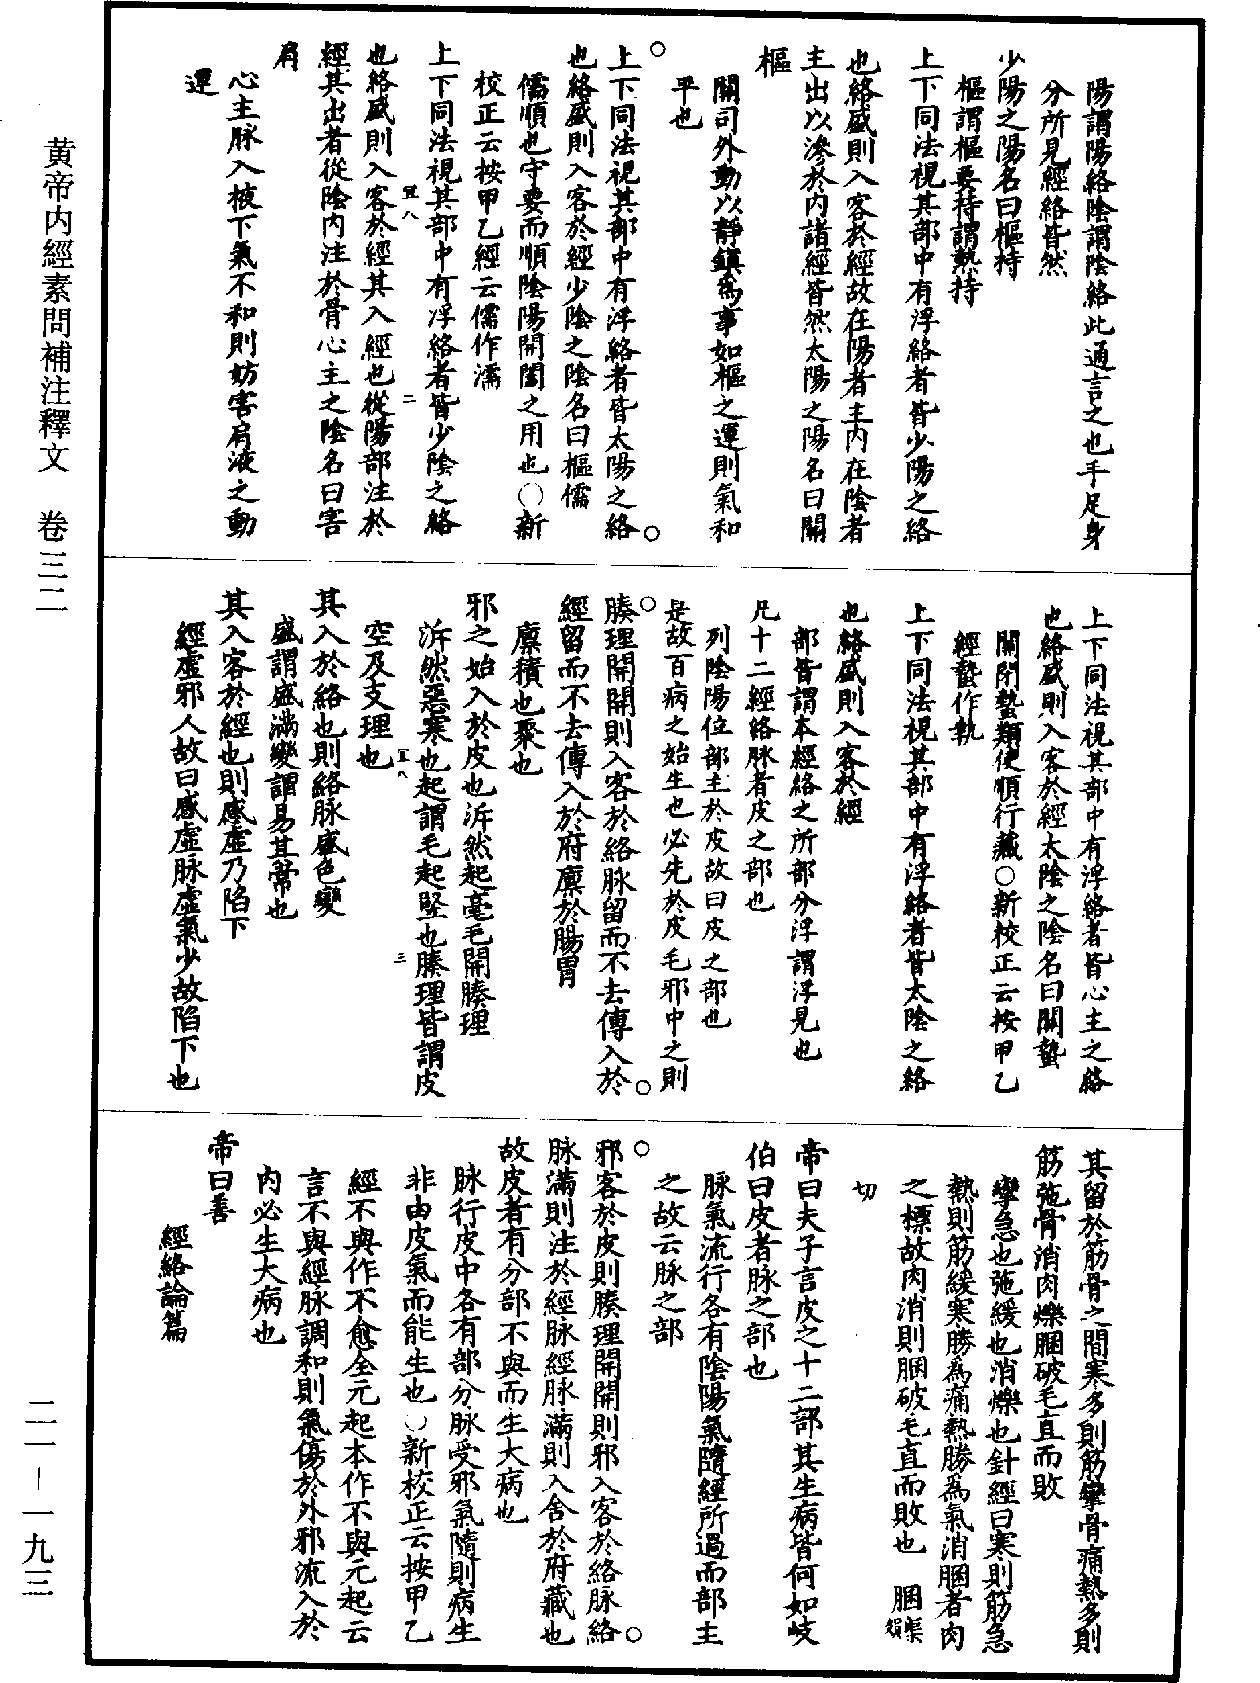 陽謂陽絡陰謂陰絡此通言之也手足身
分所見經絡皆然
少陽之陽名曰樞持
樞謂樞要持謂執持
上下同法視其部中有浮絡者皆少陽之絡
也絡盛則入客於經故在陽者主內在陰者
主出以滲於內諸經皆然太陽之陽名曰關
樞
關司外動以靜鎮為事如樞之運則氣和
平也
上下同法視其部中有浮絡者皆太陽之絡
也絡盛則入客於經少陰之陰名曰樞儒
儒順也守要而順陰陽開闔之用也○新
校正云按甲乙經云儒作濡
上下同法視其部中有浮絡者皆少陰之絡
也絡盛則入客於經其入經也從陽部注於
經其出者從陰內注於骨心主之陰名曰害
肩
心主脉入掖下氣不和則妨害肩液之動
運
上下同法視其部中有浮絡者皆心主之絡
也絡盛則入客於經太陰之陰名曰關蟄
關閉蟄類使順行藏○新校正云按甲乙
經蟄作執
上下同法視其部中有浮絡者皆太陰之絡
也絡盛則入客於經
部皆謂本經絡之所部分浮謂浮見也
凡十二經絡脉者皮之部也
列陰陽位部主於皮故曰皮之部也
是故百病之始生也必先於皮毛邪中之則
腠理開開則入客於絡脉留而不去傳入於
經留而不去傳入於府廪於腸胃
廪積也聚也
邪之始入於皮也泝然起毫毛開腠理
泝然惡寒也起謂毛起竪也腠理皆謂皮
空及支理也
其入於絡也則絡脉盛色變
盛謂盛滿變謂易其常也
其入客於經也則感虛乃陷下
經虛邪人故曰感虛脉虛氣少故陷下也
其留於筋骨之間寒多則筋攣骨痛熱多則
筋弛骨消肉爍䐃破毛直而敗
攣急也弛緩也消爍也針經曰寒則筋急
熱則筋緩寒勝為痛熱勝為氣消䐃者肉
之標故肉消則䐃破毛直而敗也 䐃渠殞
切
帝曰夫子言皮之十二部其生病皆何如岐
伯曰皮者脉之部也
脉氣流行各有陰陽氣隨經所過而部主
之故云脉之部
邪客於皮則腠理開開則邪入客於絡脉絡
脉滿則注於經脉經脉滿則入舍於府藏也
故皮者有分部不與而生大病也
脉行皮中各有部分脉受邪氣隨則病生
非由皮氣而能生也○新校正云按甲乙
經不與作不愈全元起本作不與元起云
言不與經脉調和則氣傷於外邪流入於
內必生大病也
帝曰善
經絡論篇
黃帝內經素問補注釋文 卷三二
二一－一九三